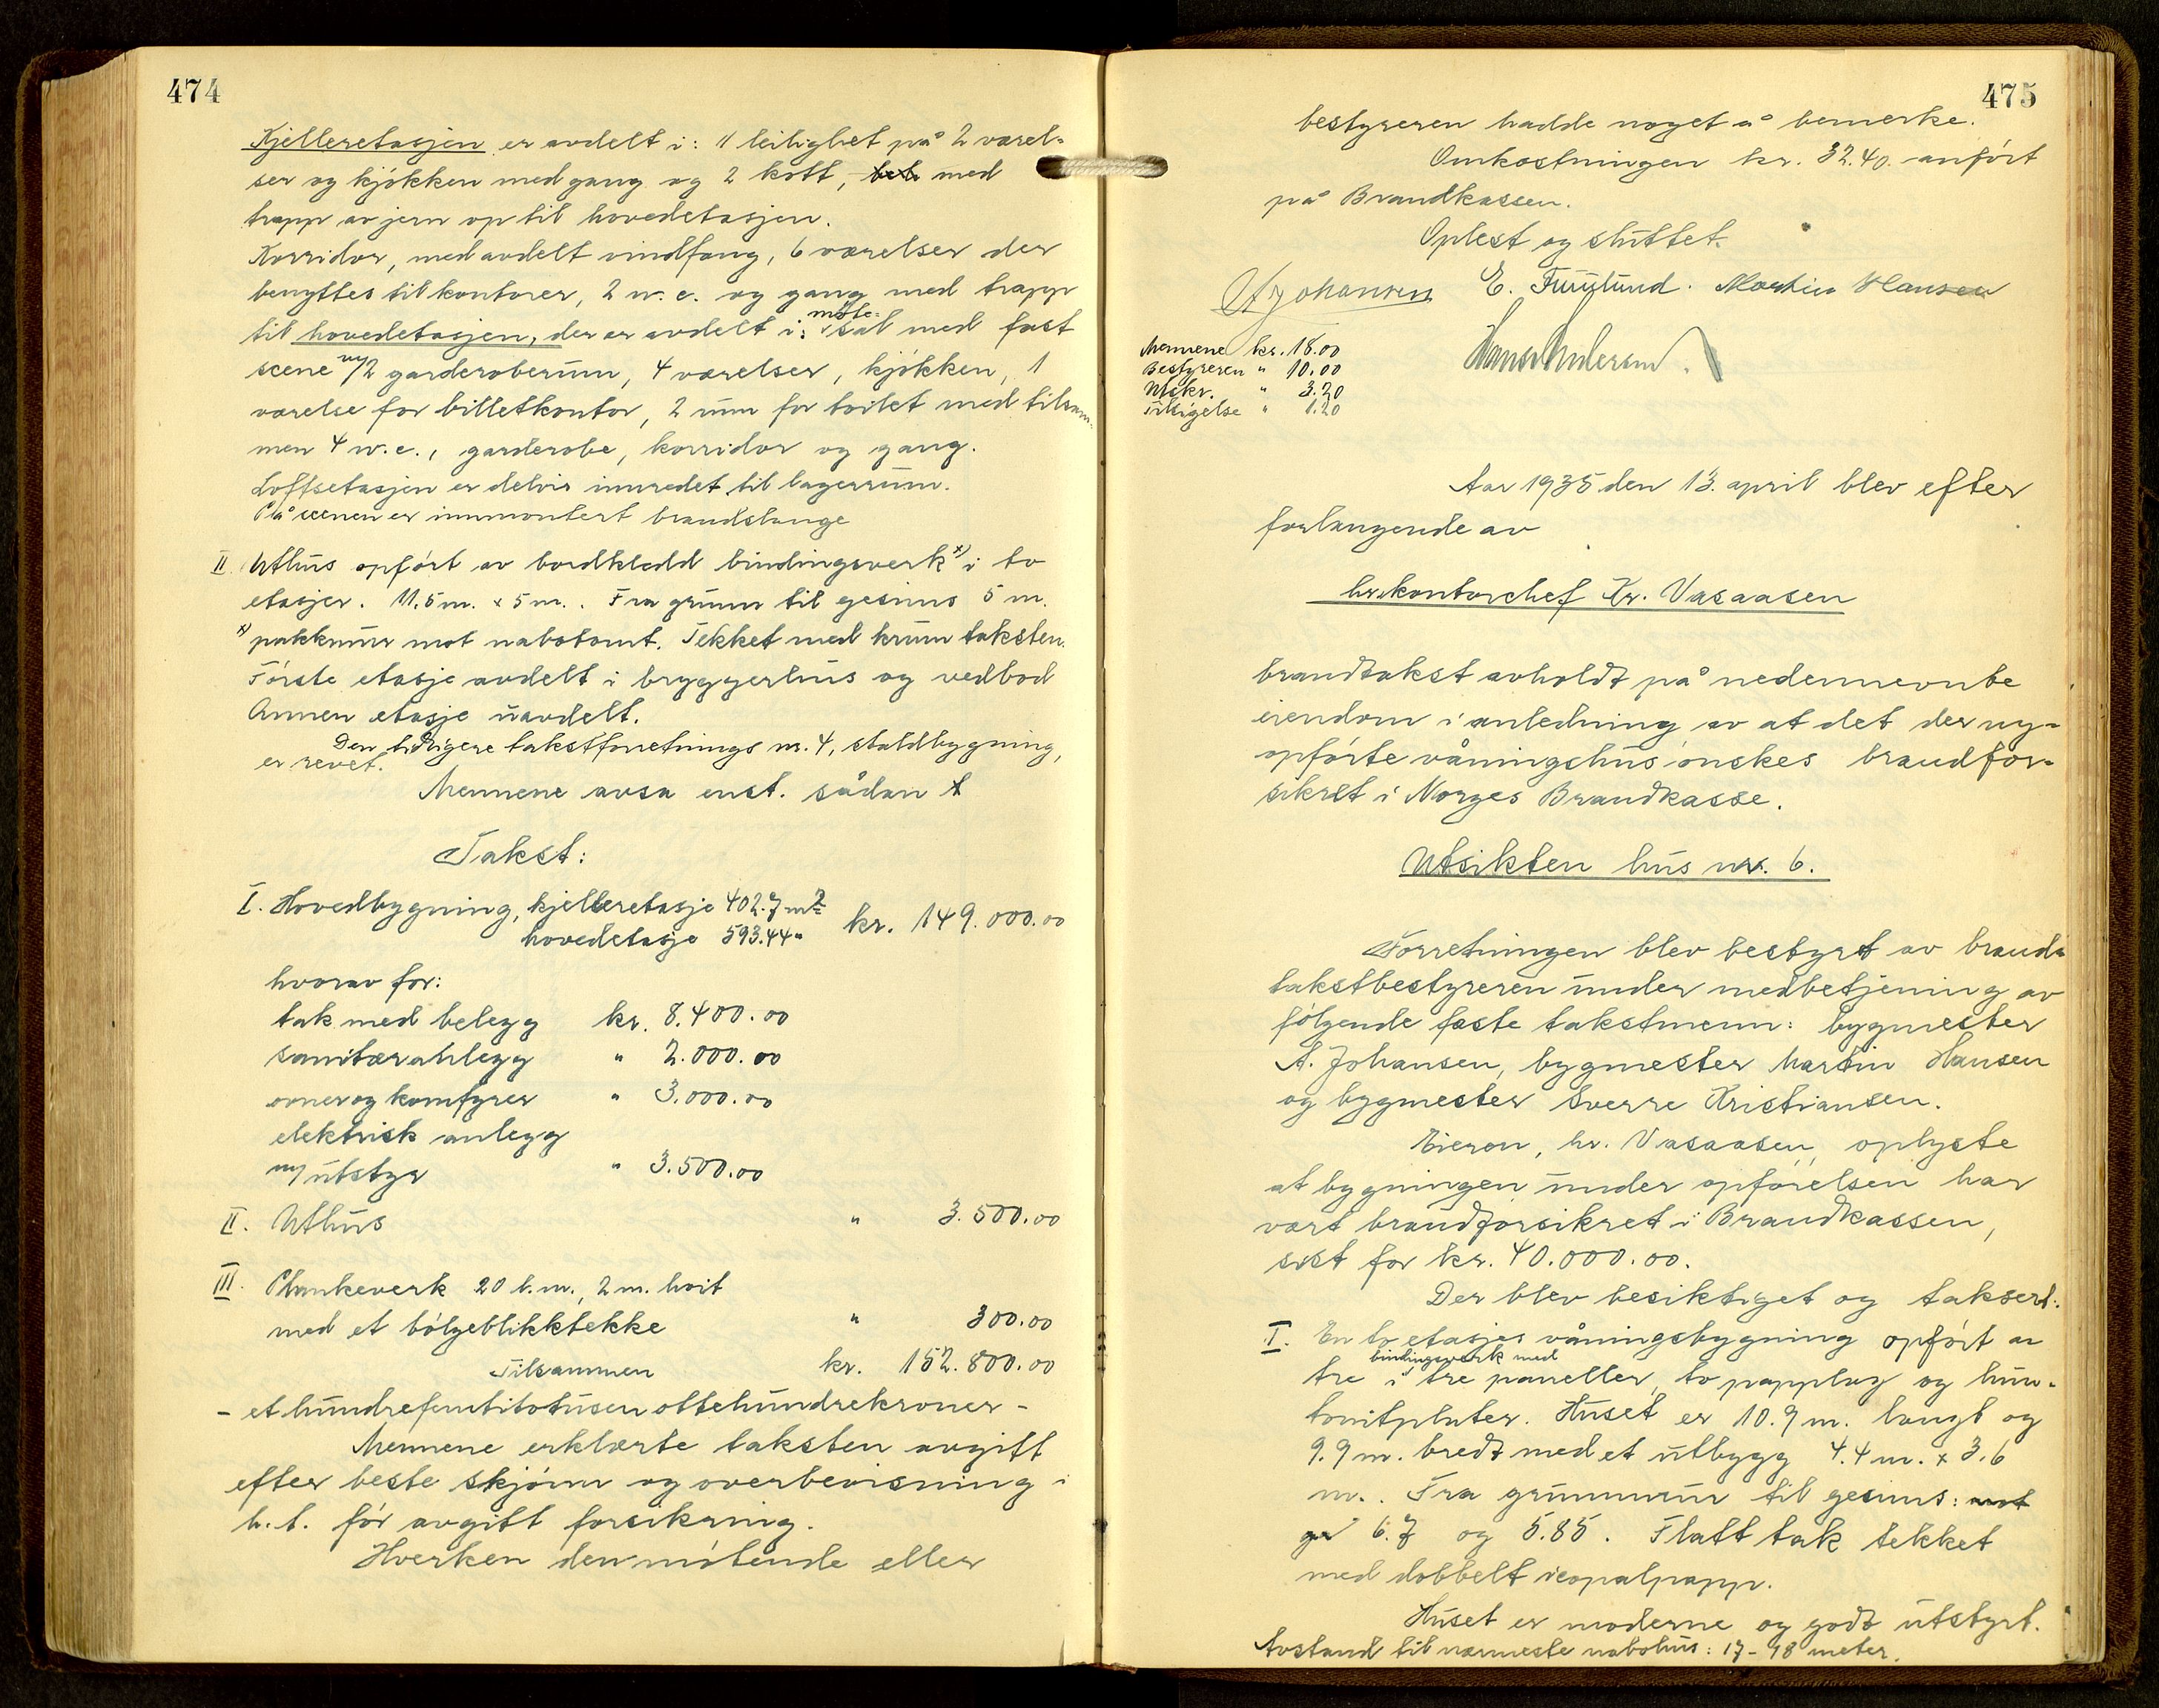 474
Kjelleretasjen er avdelt i: 1 leilighet på 2 værel-
ser og kjøkken med gang og 2 kott, med
trapp av jern op til hovedetasjen.
Korridor, med avdelt vindfang, 6 værelser der
benyttes til kontorer, 2 w.c. og gang med trapp
til hovedetasjen, der er avdelt i: møte-sal med fast
scene m/2 garderoberum, 4 værelser, kjøkken, 1
værelse for billetkontor, 2 rum for toilet med tilsam-
men 4 w.c., garderobe, korridor og gang.
Loftsetasjen er delvis innredet til lagerrum.
På scenen er innmontert brandslange
II. Uthus opført av bordkledd bindingsverk x) i to
etasjer. 11.5 m. x 5 m.. Fra grunn til gesims 5 m.
x) pakkmur mot nabotomt. Tekket med krum taksten.
Første etasje avdelt i bryggerhus og vedbod
Annen etasje uavdelt.
Den tidligere takstforretnings nr. 4, staldbygning,
er revet.
Mennene avsa enst. sådan
Takst:
I. Hovedbygning, kjelleretasje 402.7 m2
hovedetasje 593.44 " kr. 149.000.00
hvorav for:
tak med belegg kr. 8.400.00
sanitæranlegg " 2.000.00
ovner og komfyrer " 3.000.00
elektrisk anlegg
m/ utstyr " 3.500.00
II. Uthus " 3.500.00
III. Plankeverk 20 l.m., 2 m. høit
med et bølgeblikktekke " 300.00
Tilsammen kr. 152.800.00
- et hundrefemtitotusen ottehundrekroner -
Mennene erklærte taksten avgitt
efter beste skjønn og overbevisning i
h.t. før avgitt forsikring.
Hverken den møtende eller
475
bestyreren hadde noget å bemerke.
Omkostningen kr. 32.40. anført
på Brandkassen.
Oplest og sluttet.
A Johansen E. Furulund. Martin Hansen
Mennene kr. 18.00
Bestyreren " 10.00
Utskr. " 3.20
" 1.20
Aar 1935 den 13. april blev efter
forlangende av
hr. kontorchef Kr. Vasaasen
brandtakst avholdt på nedennevnte
eiendom i anledning av at det der ny-
opførte våningshus ønskes brandfor-
sikret i Norges Brandkasse.
Utsikten hus nr. 6.
Forretningen blev bestyret av brand-
takstbestyreren under medbetjening av
følgende faste takstmenn: bygmester
A. Johansen, bygmester Martin Hansen
og bygmester Sverre Kristiansen.
Eieren, hr. Vasaasen, oplyste
at bygningen under opførelsen har
vært brandforsikret i Brandkassen,
sist for kr. 40.000.00.
Der blev besiktiget og taksert:
I. En to etasjes våningsbygning opført av
bindingsverk med
tre i tre paneller, to papplag og hun-
tonitplater. Huset er 10.9 m. langt og
9.9 m. bredt med et utbygg 4.4 m. x 3.6
m.. Fra grunnmur til gesims:
6.7 og 5.85. Flatt tak tekket
med dobbelt icopalpapp.
Huset er moderne og godt utstyrt.
Avstand til nærmeste nabohus: 17-18 meter.